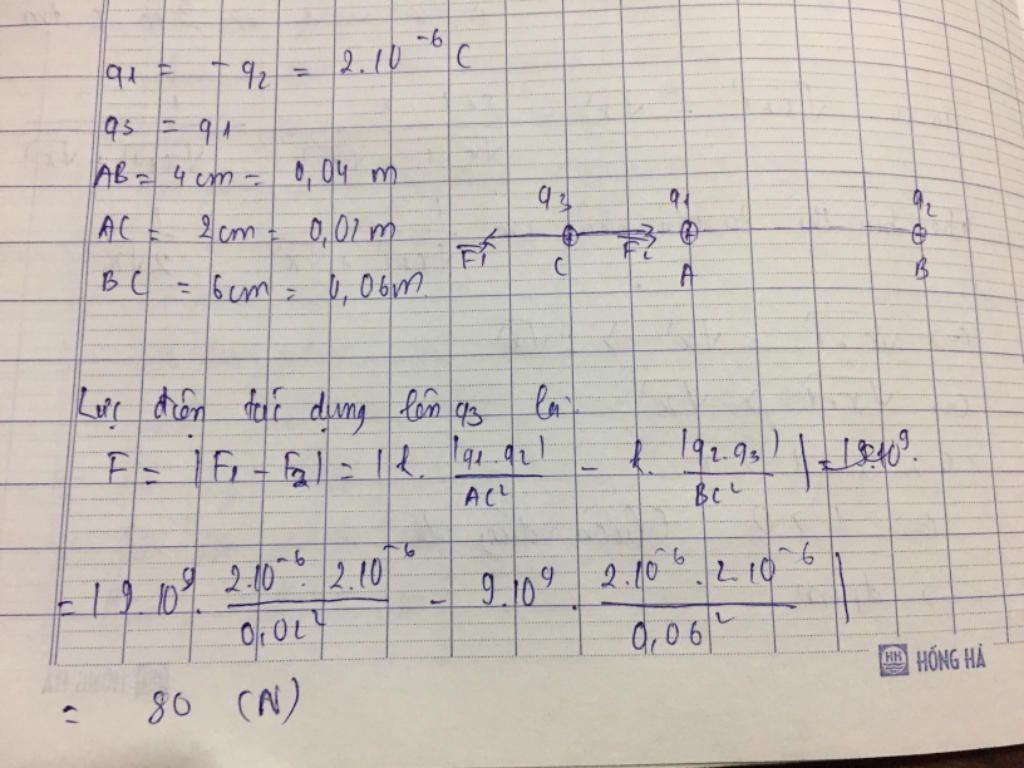 q1 = - q2 = 2.10⁻⁶ C
q3 = q1
AB = 4cm = 0,04 m
AC = 2cm = 0,02m
BC = 6cm = 0,06m
q3 q1 q2
F1 C F2 A B
Lực điện tác dụng lên q3 là:
F = |F1 - F2| = |k. |q1.q2| / AC² - k. |q2.q3| / BC² | = |9.10⁹.
= | 9.10⁹. 2.10⁻⁶. 2.10⁻⁶ / 0,02² - 9.10⁹. 2.10⁻⁶. 2.10⁻⁶ / 0,06² |
= 80 (N)
HH HỒNG HÀ